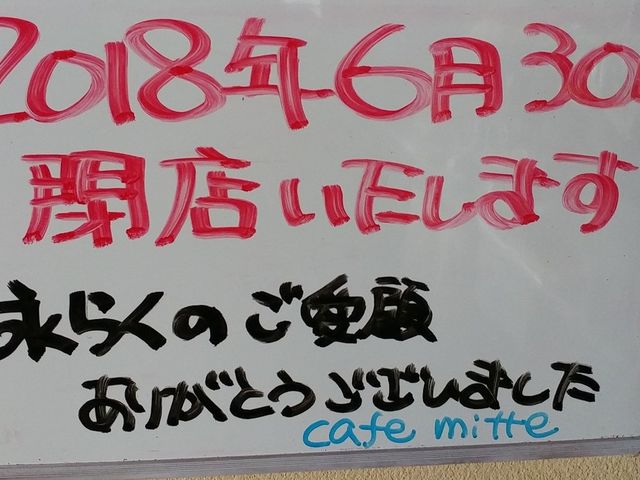 2018年6月30
閉店いたします
永らくのご愛顧
ありがとうございました
cafe mitte